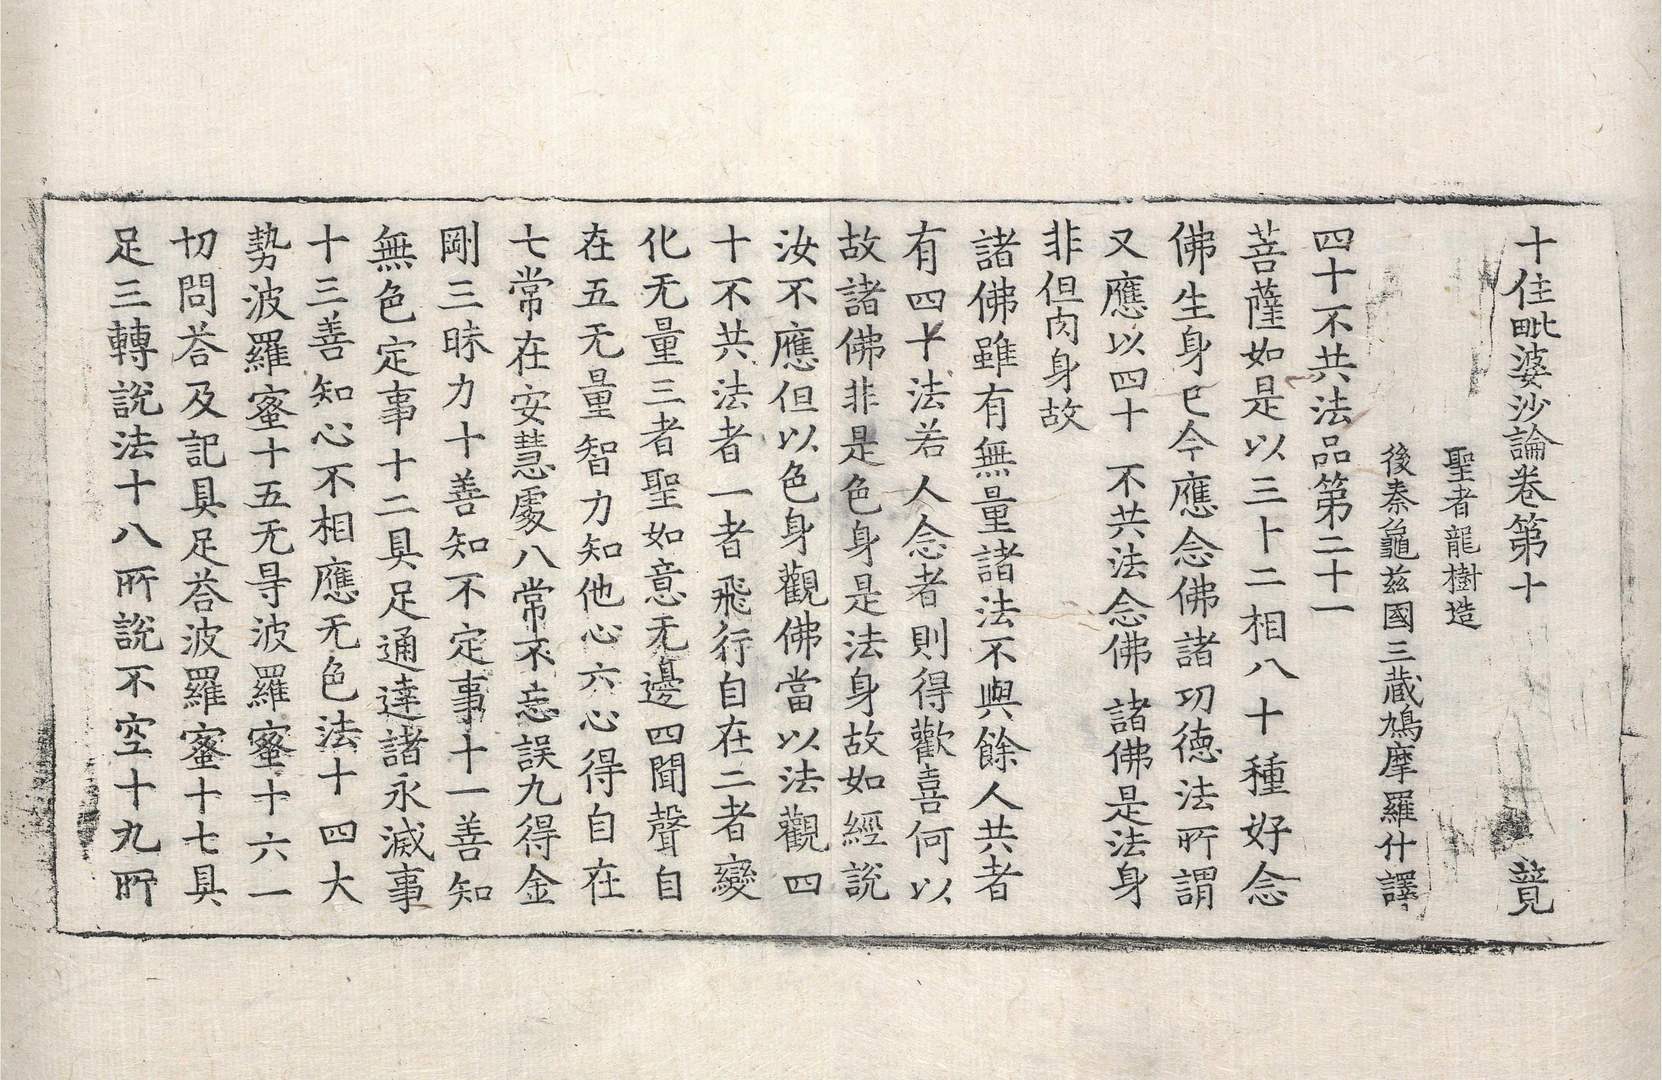 十住毗婆沙論卷第十 薲
聖者龍樹造
後秦龜茲國三藏鳩摩羅什譯
四十不共法品第二十一
菩薩如是以三十二相八十種好念
佛生身已今應念佛諸功德法所謂
又應以四十 不共法念佛 諸佛是法身
非但肉身故
諸佛雖有無量諸法不與餘人共者
有四十法若人念者則得歡喜何以
故諸佛非是色身是法身故如經說
汝不應但以色身觀佛當以法觀四
十不共法者一者飛行自在二者變
化无量三者聖如意无邊四聞聲自
在五无量智力知他心六心得自在
七常在安慧處八常不忘誤九得金
剛三昧力十善知不定事十一善知
無色定事十二具足通達諸永滅事
十三善知心不相應无色法十四大
勢波羅蜜十五无㝵波羅蜜十六一
切問荅及記具足荅波羅蜜十七具
足三轉說法十八所說不空十九所